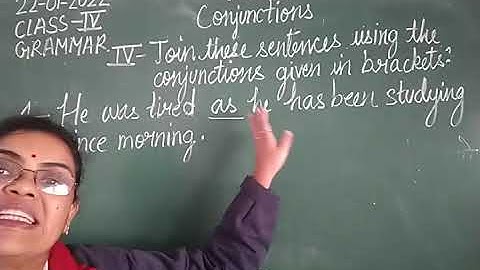 22-01-2022
Conjunctions
CLASS-IV
GRAMMAR
IV- Join these sentences using the
conjunctions given in brackets:
1- He was tired as he has been studying
since morning.